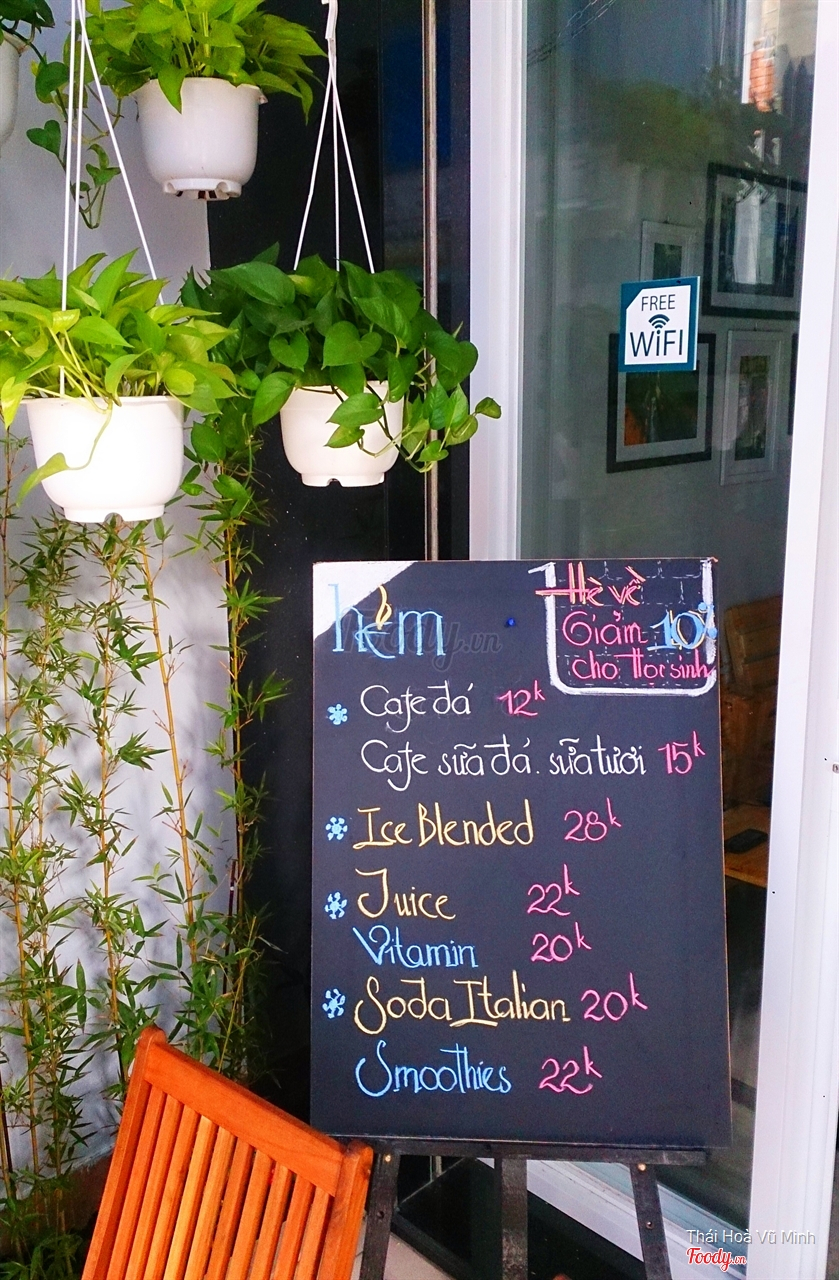 FREE
WiFI
hẻm
Foody.vn
Hè về
Giảm 10%
cho Học sinh
Cafe đá 12k
Cafe sữa đá. sữa tươi 15k
Ice Blended 28k
Juice 22k
Vitamin 20k
Soda Italian 20k
Smoothies 22k
Thái Hoà Vũ Minh
Foody.vn